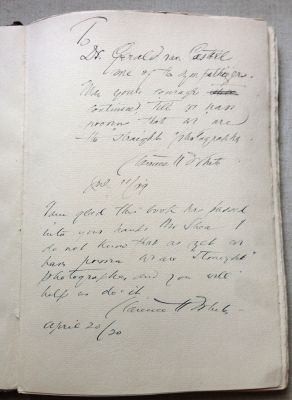 To
Dr. Gerald van Casteel
one of the sympathizers.
May your courage
continue, till we have
proven that we are
the "straight" photographs.
Clarence H White
11/19
I am glad this book has passed
into your hands Mr Shea I
do not know that as yet we
have proven we are "straight"
photographers and you will
help us do it
Clarence H White
April 20/20